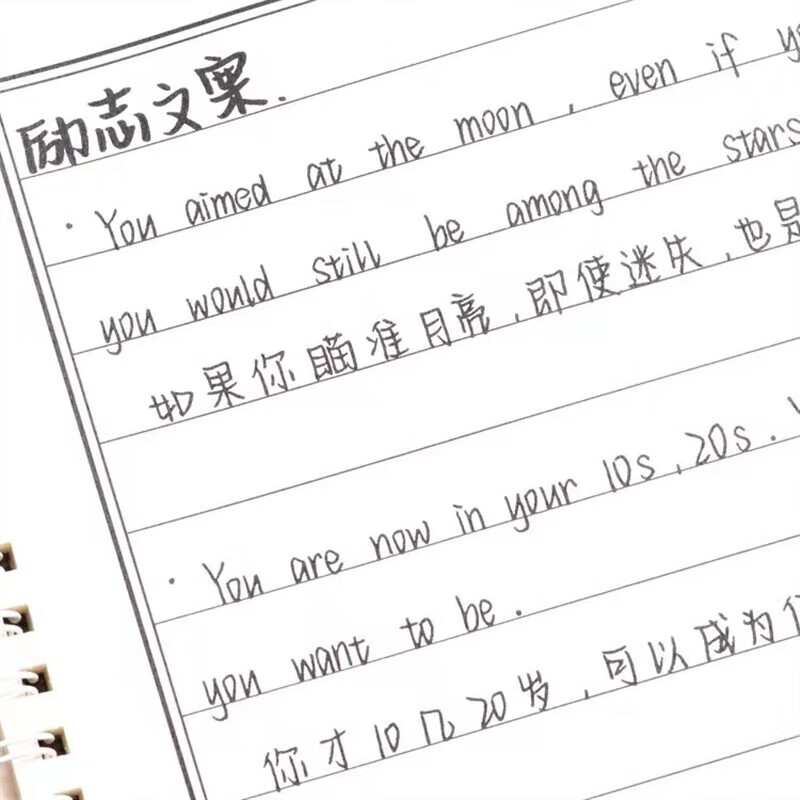 励志文案.
· You aimed at the moon, even if
you would still be among the stars
如果你瞄准月亮,即使迷失,也是
· You are now in your 10s,20s.
you want to be.
你才10几20岁,可以成为